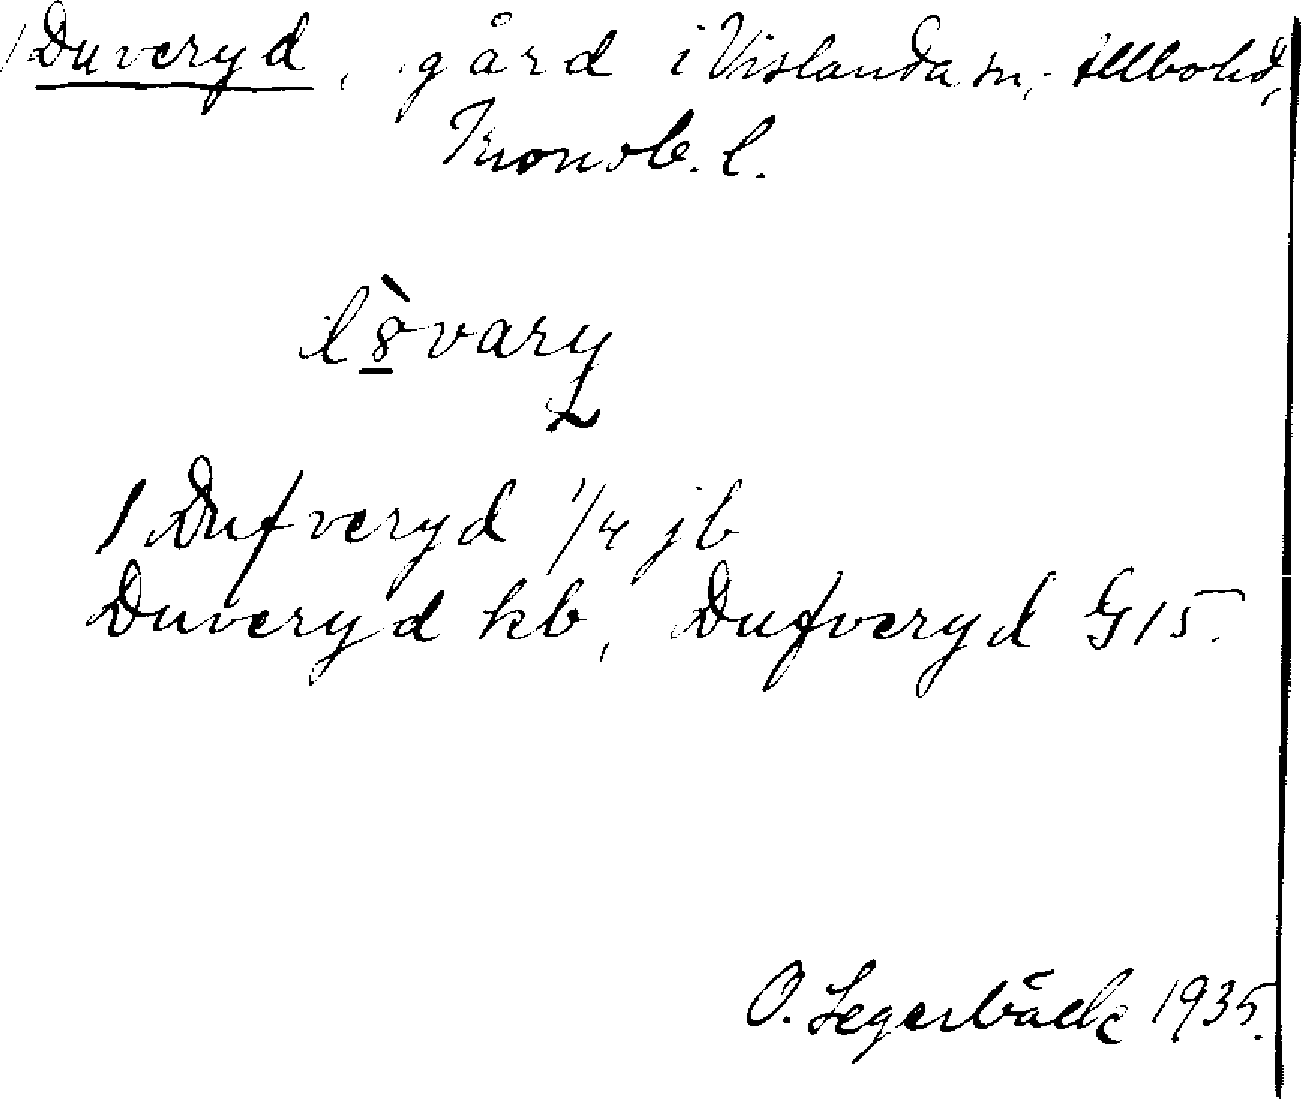 Duveryd, gård i Vislanda sn, Allbo hd,
Kronob. l.
1 Dufveryd 1/4 jb
Duveryd kb, Dufveryd G15.
O. Segerbäck 1935.